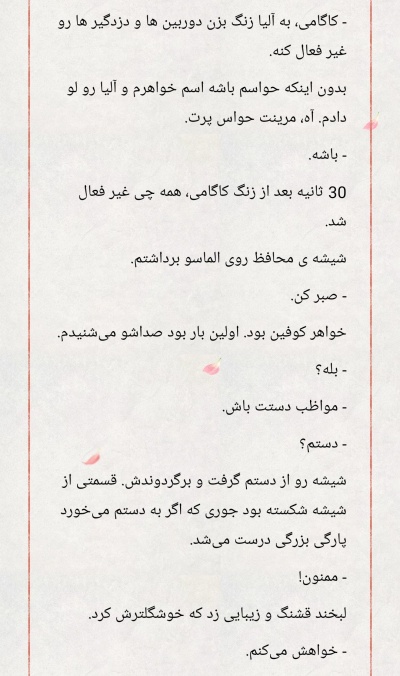 - کاگامی، به آلیا زنگ بزن دوربین ها و دزدگیر ها رو
غیر فعال کنه.
بدون اینکه حواسم باشه اسم خواهرم و آلیا رو لو
دادم. آه، مرینت حواس پرت.
- باشه.
30 ثانیه بعد از زنگ کاگامی، همه چی غیر فعال
شد.
شیشه ی محافظ روی الماسو برداشتم.
- صبر کن.
خواهر کوفین بود. اولین بار بود صداشو می‌شنیدم.
- بله؟
- مواظب دستت باش.
- دستم؟
شیشه رو از دستم گرفت و برگردوندش. قسمتی از
شیشه شکسته بود جوری که اگر به دستم می‌خورد
پارگی بزرگی درست می‌شد.
- ممنون!
لبخند قشنگ و زیبایی زد که خوشگلترش کرد.
- خواهش می‌کنم.